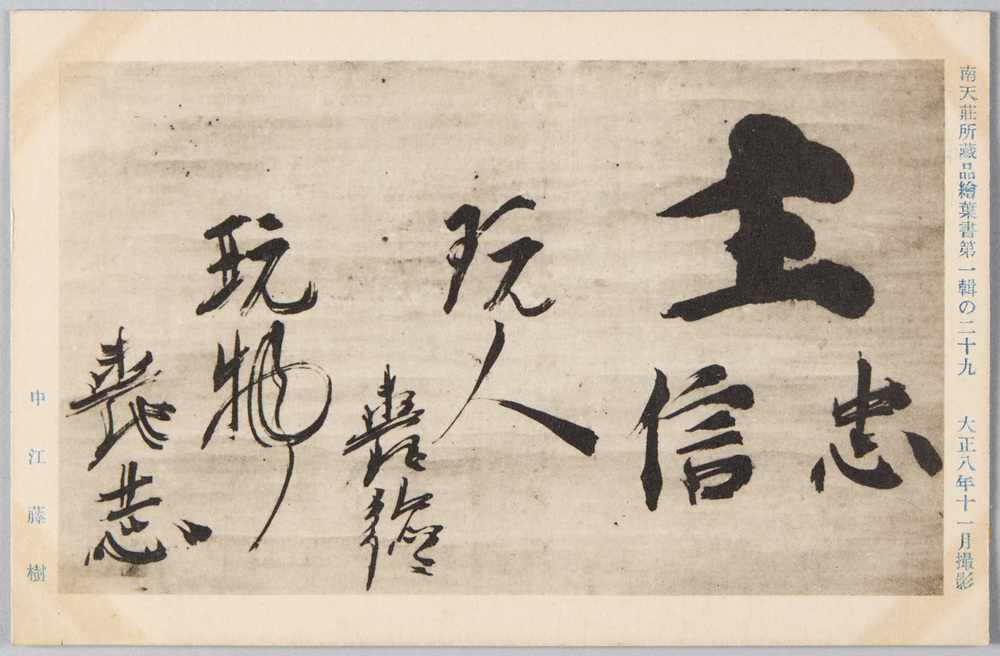 南天莊所藏品繪葉書第一輯の二十九　大正八年十一月撮影
主
忠信
玩人
喪德
玩物
喪志
中江藤樹